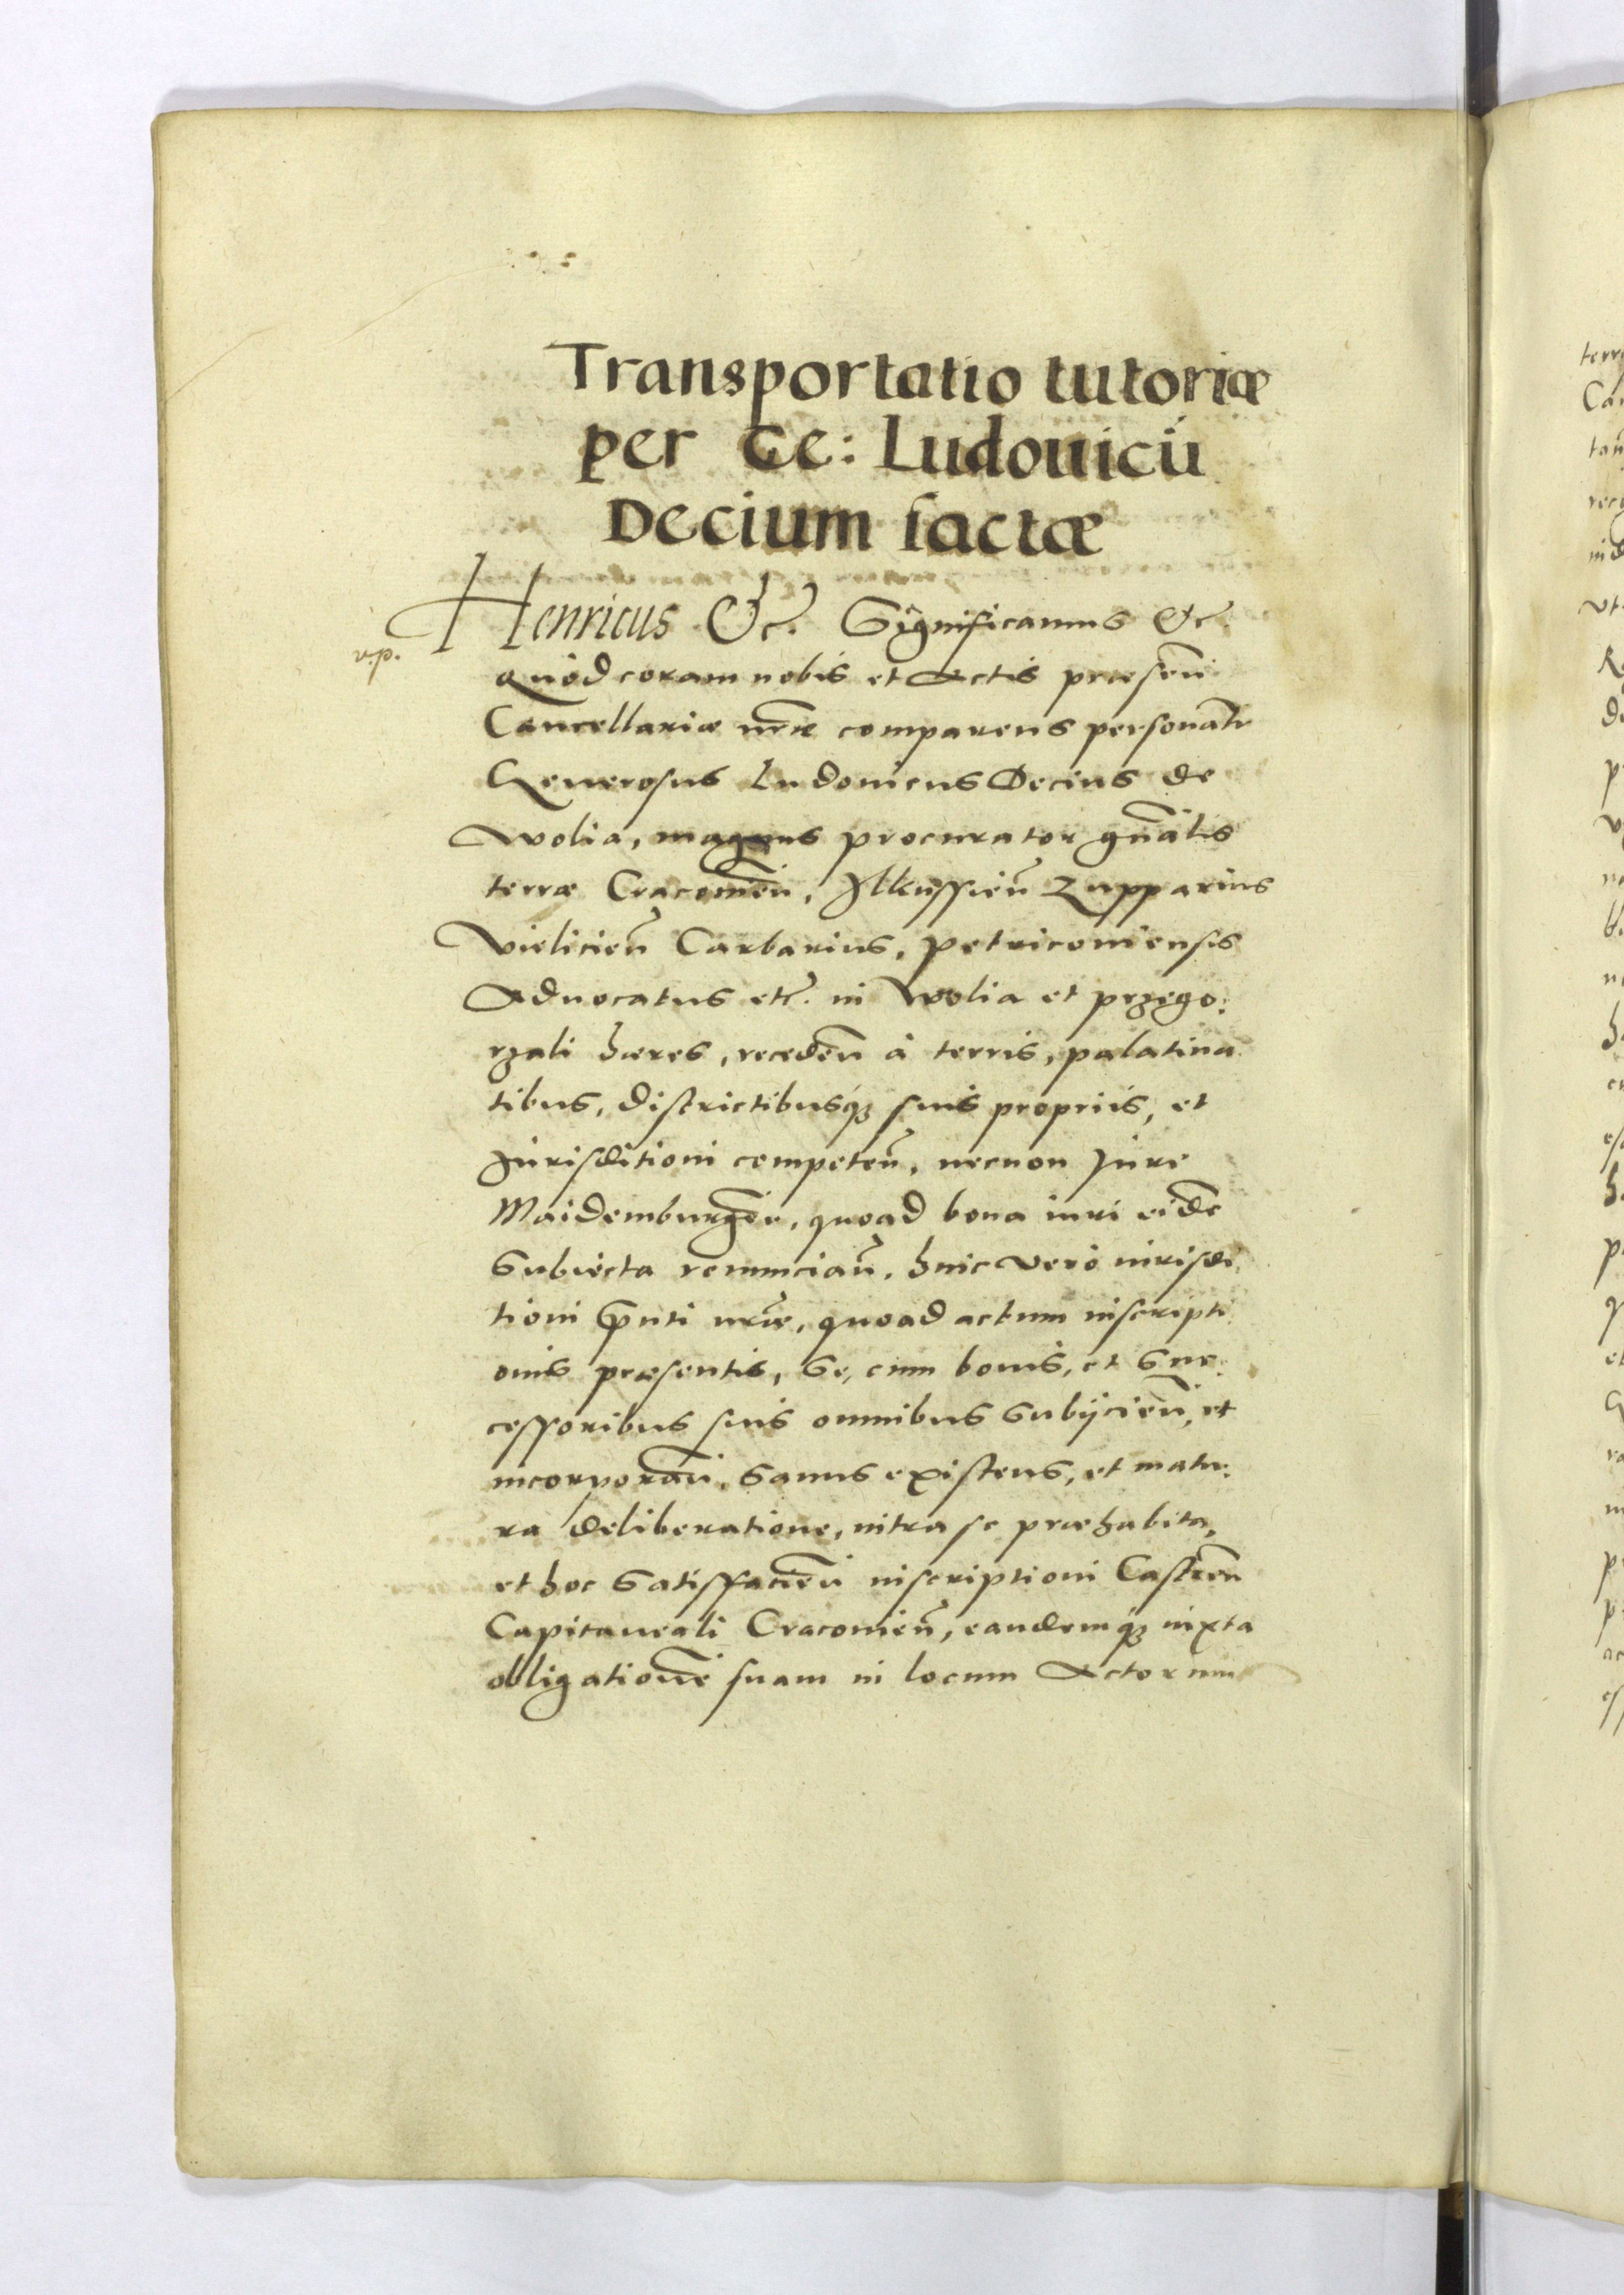 Transportatio tutoriæ
per Ge: Ludouicū
Decium factæ
Henricus &c. Significamus &c.
v.p.
Quòd coram nobis et Actis præsen̄
Cancellariæ nr̄æ comparens personalr̄
Generosus Ludouicus Decius de
Wolia, magnus procurator gn̄alis
terræ Cracouien̄, Ilkussien̄ Zupparius
Vielicien̄ Carbarius, Petricouiensis
Aduocatus etc. in Wolia et Przego:
rzali hæres, receden̄ à terris, palatina
tibus, districtibusq; suis proprijs, et
Iurisditioni competen̄, necnon Iure
Maidemburgen̄, quoad bona iuri eidē
subiecta renuncian̄, huic verò iurisdi,
tioni p̄nti nr̄æ, quoad actum inscripti
onis præsentis, se, cum bonis, et suc:
cessoribus suis omnibus subijcien̄, et
incorporan̄, sanus existens, et matu:
ra deliberatione, intra se præhabita,
et hoc satisfacien̄ inscriptioni Castren̄
Capitaneali Cracouien̄, eandemq; iuxta
obligationē suam in locum Actorum